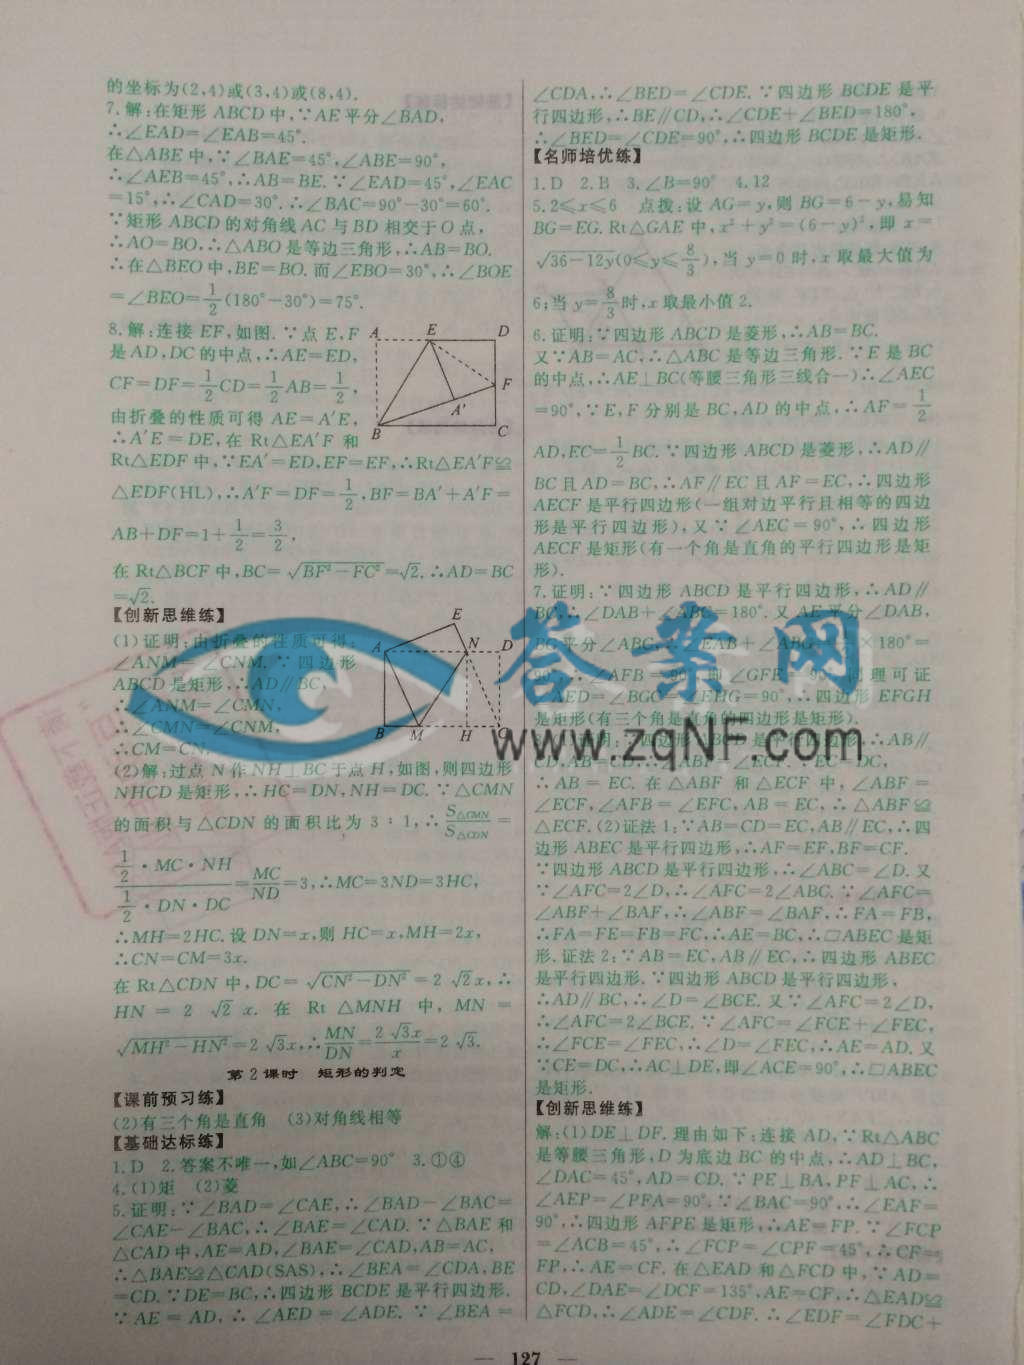 的坐标为(2,4)或(3,4)或(8,4).
7.解:在矩形 ABCD 中,∵AE 平分∠BAD,
∴∠EAD=∠EAB=45°.
在△ABE 中,∵∠BAE=45°,∠ABE=90°,
∴∠AEB=45°,∴AB=BE.∵∠EAD=45°,∠EAC
=15°,∴∠CAD=30°.∴∠BAC=90°-30°=60°.
∵矩形 ABCD 的对角线 AC 与 BD 相交于 O 点,
∴AO=BO,∴△ABO 是等边三角形,∴AB=BO.
∴在△BEO 中,BE=BO.而∠EBO=30°,∴∠BOE
=∠BEO=1/2(180°-30°)=75°.
8.解:连接 EF,如图.∵点 E,F
是 AD,DC 的中点,∴AE=ED,
CF=DF=1/2CD=1/2AB=1/2,
由折叠的性质可得 AE=A′E,
∴A′E=DE,在 Rt△EA′F 和
Rt△EDF 中,∵EA′=ED,EF=EF,∴Rt△EA′F≌
△EDF(HL),∴A′F=DF=1/2,BF=BA′+A′F=
AB+DF=1+1/2=3/2,
在 Rt△BCF 中,BC=√(BF²-FC²)=√2.∴AD=BC
=√2.
A E D
F
A′
B C
【创新思维练】
(1)证明:由折叠的性质可得:
∠ANM=∠CNM.∵四边形
ABCD 是矩形,∴AD∥BC,
∴∠ANM=∠CMN,
∴∠CMN=∠CNM,
∴CM=CN.
(2)解:过点 N 作 NH⊥BC 于点 H,如图,则四边形
NHCD 是矩形,∴HC=DN,NH=DC.∵△CMN
的面积与△CDN 的面积比为 3∶1,∴S△CMN/S△CDN=
(1/2·MC·NH)/(1/2·DN·DC)=MC/ND=3,∴MC=3ND=3HC,
∴MH=2HC.设 DN=x,则 HC=x,MH=2x,
∴CN=CM=3x.
在 Rt△CDN 中,DC=√(CN²-DN²)=2√2x,∴
HN=2√2x.在 Rt△MNH 中,MN=
√(MH²-HN²)=2√3x,∴MN/DN=2√3x/x=2√3.
E
A N D
B M H C
第 2 课时 矩形的判定
【课前预习练】
(2)有三个角是直角 (3)对角线相等
【基础达标练】
1.D 2.答案不唯一,如∠ABC=90° 3.①④
4.(1)矩 (2)菱
5.证明:∵∠BAD=∠CAE,∴∠BAD-∠BAC=
∠CAE-∠BAC,∴∠BAE=∠CAD.∵△BAE 和
△CAD 中,AE=AD,∠BAE=∠CAD,AB=AC,
∴△BAE≌△CAD(SAS),∴∠BEA=∠CDA,BE
=CD.∵DE=BC,∴四边形 BCDE 是平行四边形.
∵AE=AD,∴∠AED=∠ADE.∵∠BEA=
∠CDA,∴∠BED=∠CDE.∵四边形 BCDE 是平
行四边形,∴BE∥CD,∴∠CDE+∠BED=180°,
∴∠BED=∠CDE=90°,∴四边形 BCDE 是矩形.
【名师培优练】
1.D 2.B 3.∠B=90° 4.12
5.2≤x≤6 点拨:设 AG=y,则 BG=6-y,易知
BG=EG.Rt△GAE 中,x²+y²=(6-y)²,即 x=
√(36-12y)(0≤y≤8/3),当 y=0 时,x 取最大值为
6;当 y=8/3时,x 取最小值 2.
6.证明:∵四边形 ABCD 是菱形,∴AB=BC.
又∵AB=AC,∴△ABC 是等边三角形.∵E 是 BC
的中点,∴AE⊥BC(等腰三角形三线合一)∴∠AEC
=90°,∵E,F 分别是 BC,AD 的中点,∴AF=1/2
AD,EC=1/2BC.∵四边形 ABCD 是菱形,∴AD∥
BC 且 AD=BC,∴AF∥EC 且 AF=EC,∴四边形
AECF 是平行四边形(一组对边平行且相等的四边
形是平行四边形),又∵∠AEC=90°,∴四边形
AECF 是矩形(有一个角是直角的平行四边形是矩
形).
7.证明:∵四边形 ABCD 是平行四边形,∴AD∥
BC,∴∠DAB+∠ABC=180°.又 AE 平分∠DAB,
BG 平分∠ABC,∴∠EAB+∠ABG= ×180°=
90°,∴∠AFB=90°,即∠GFE=90°.同理可证
∠AED=∠BGC=∠EHG=90°,∴四边形 EFGH
是矩形(有三个角是直角的四边形是矩形).
证明:∵四边形 是平行四边形,∴AB∥
CD,AB=CD, EC=DC,
∴AB=EC.在△ABF 和△ECF 中,∠ABF=
∠ECF,∠AFB=∠EFC,AB=EC,∴△ABF≌
△ECF.(2)证法 1:∵AB=CD=EC,AB∥EC,∴四
边形 ABEC 是平行四边形,∴AF=EF,BF=CF.
∵四边形 ABCD 是平行四边形,∴∠ABC=∠D.又
∵∠AFC=2∠D,∴∠AFC=2∠ABC.∵∠AFC=
∠ABF+∠BAF,∴∠ABF=∠BAF,∴FA=FB,
∴FA=FE=FB=FC,∴AE=BC,∴▱ABEC 是矩
形.证法 2:∵AB=EC,AB∥EC,∴四边形 ABEC
是平行四边形.∵四边形 ABCD 是平行四边形,
∴AD∥BC,∴∠D=∠BCE.又∵∠AFC=2∠D,
∴∠AFC=2∠BCE.∵∠AFC=∠FCE+∠FEC,
∴∠FCE=∠FEC,∴∠D=∠FEC,∴AE=AD.又
∵CE=DC,∴AC⊥DE,即∠ACE=90°,∴▱ABEC
是矩形.
【创新思维练】
解:(1)DE⊥DF.理由如下:连接 AD,∵Rt△ABC
是等腰三角形,D 为底边 BC 的中点,∴AD⊥BC,
∠DAC=45°,AD=CD.∵PE⊥BA,PF⊥AC,∴
∠AEP=∠PFA=90°.∵∠BAC=90°,∴∠EAF=
90°,∴四边形 AFPE 是矩形,∴AE=FP.∵∠FCP
=∠ACB=45°,∴∠FCP=∠CPF=45°,∴CF=
FP,∴AE=CF.在△EAD 和△FCD 中,∵AD=
CD,∠DAE=∠DCF=135°,AE=CF,∴△EAD≌
△FCD,∴∠ADE=∠CDF.∴∠EDF=∠FDC+
答案网
www.zqNF.com
— 127 —